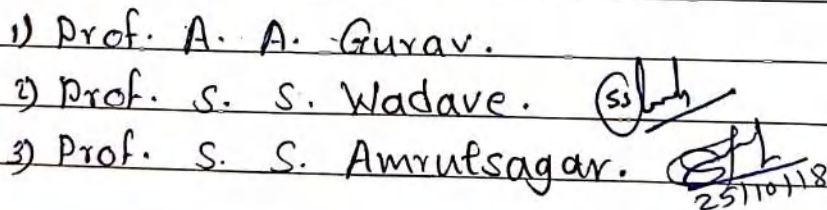 1) Prof. A. A. Gurav.
2) Prof. S. S. Wadave.
3) Prof. S. S. Amrutsagar.
25/10/18